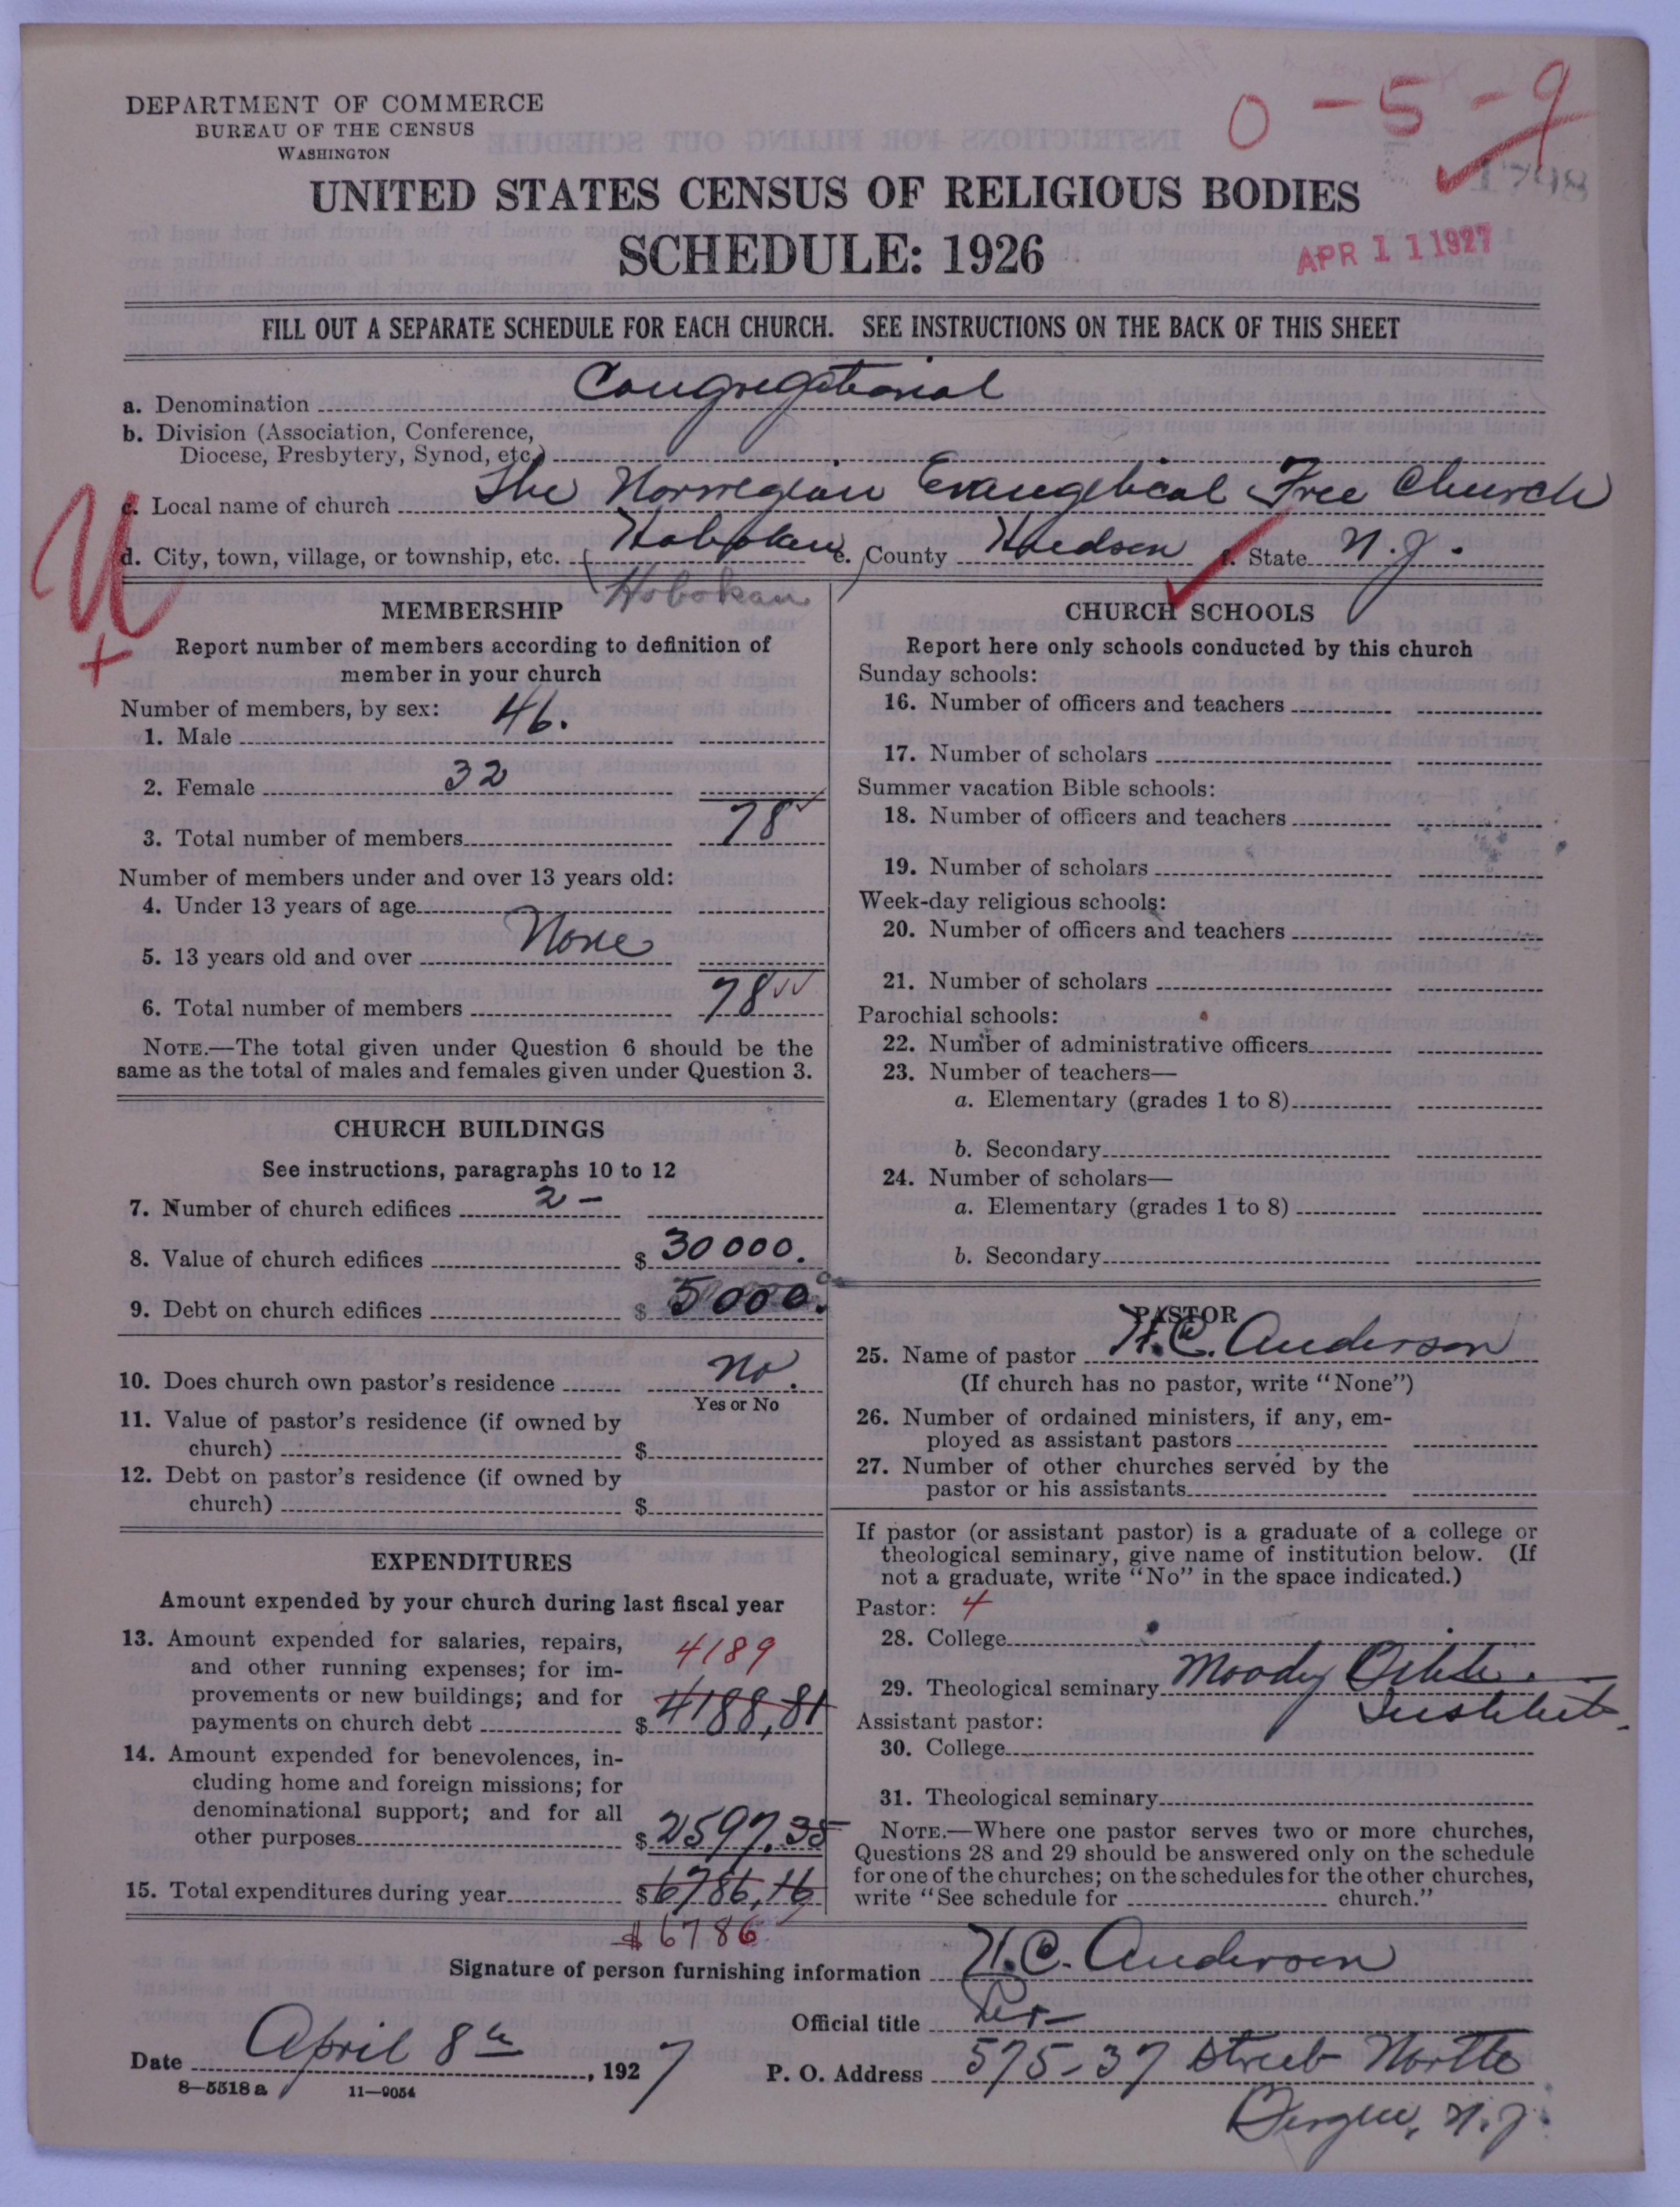 0-5-9
DEPARTMENT OF COMMERCE
BUREAU OF THE CENSUS
WASHINGTON
1798
UNITED STATES CENSUS OF RELIGIOUS BODIES
SCHEDULE: 1926
APR 11 1927
FILL OUT A SEPARATE SCHEDULE FOR EACH CHURCH. SEE INSTRUCTIONS ON THE BACK OF THIS SHEET
a. Denomination Congregational
b. Division (Association, Conference,
Diocese, Presbytery, Synod, etc.)
c. Local name of church The Norwegian Evangelical Free Church
d. City, town, village, or township, etc. Hoboken e. County Hudson f. State N.J.
Hoboken
U
+
MEMBERSHIP
Report number of members according to definition of
member in your church
Number of members, by sex:
1. Male 46.
2. Female 32
3. Total number of members 78
Number of members under and over 13 years old:
4. Under 13 years of age
5. 13 years old and over None
6. Total number of members 78
NOTE.—The total given under Question 6 should be the
same as the total of males and females given under Question 3.
CHURCH BUILDINGS
See instructions, paragraphs 10 to 12
7. Number of church edifices 2 -
8. Value of church edifices $ 30000.
9. Debt on church edifices $ 5000.
10. Does church own pastor's residence No.
Yes or No
11. Value of pastor's residence (if owned by
church) $
12. Debt on pastor's residence (if owned by
church) $
EXPENDITURES
Amount expended by your church during last fiscal year
13. Amount expended for salaries, repairs,
and other running expenses; for im-
provements or new buildings; and for
payments on church debt $ 4188,81
4189
14. Amount expended for benevolences, in-
cluding home and foreign missions; for
denominational support; and for all
other purposes $ 2597.35
15. Total expenditures during year $ 6786,16
$6786
CHURCH SCHOOLS
Report here only schools conducted by this church
Sunday schools:
16. Number of officers and teachers
17. Number of scholars
Summer vacation Bible schools:
18. Number of officers and teachers
19. Number of scholars
Week-day religious schools:
20. Number of officers and teachers
21. Number of scholars
Parochial schools:
22. Number of administrative officers
23. Number of teachers—
a. Elementary (grades 1 to 8)
b. Secondary
24. Number of scholars—
a. Elementary (grades 1 to 8)
b. Secondary
PASTOR
25. Name of pastor H.C. Anderson
(If church has no pastor, write "None")
26. Number of ordained ministers, if any, em-
ployed as assistant pastors
27. Number of other churches served by the
pastor or his assistants
If pastor (or assistant pastor) is a graduate of a college or
theological seminary, give name of institution below. (If
not a graduate, write "No" in the space indicated.)
Pastor: 4
28. College
29. Theological seminary Moody Bible
Institut.
Assistant pastor:
30. College
31. Theological seminary
NOTE.—Where one pastor serves two or more churches,
Questions 28 and 29 should be answered only on the schedule
for one of the churches; on the schedules for the other churches,
write "See schedule for church."
Signature of person furnishing information H.C. Anderson
Official title
Date April 8th, 1927
P. O. Address 575-37 Street North
Bergen, N.J.
8—5518a 11—9054